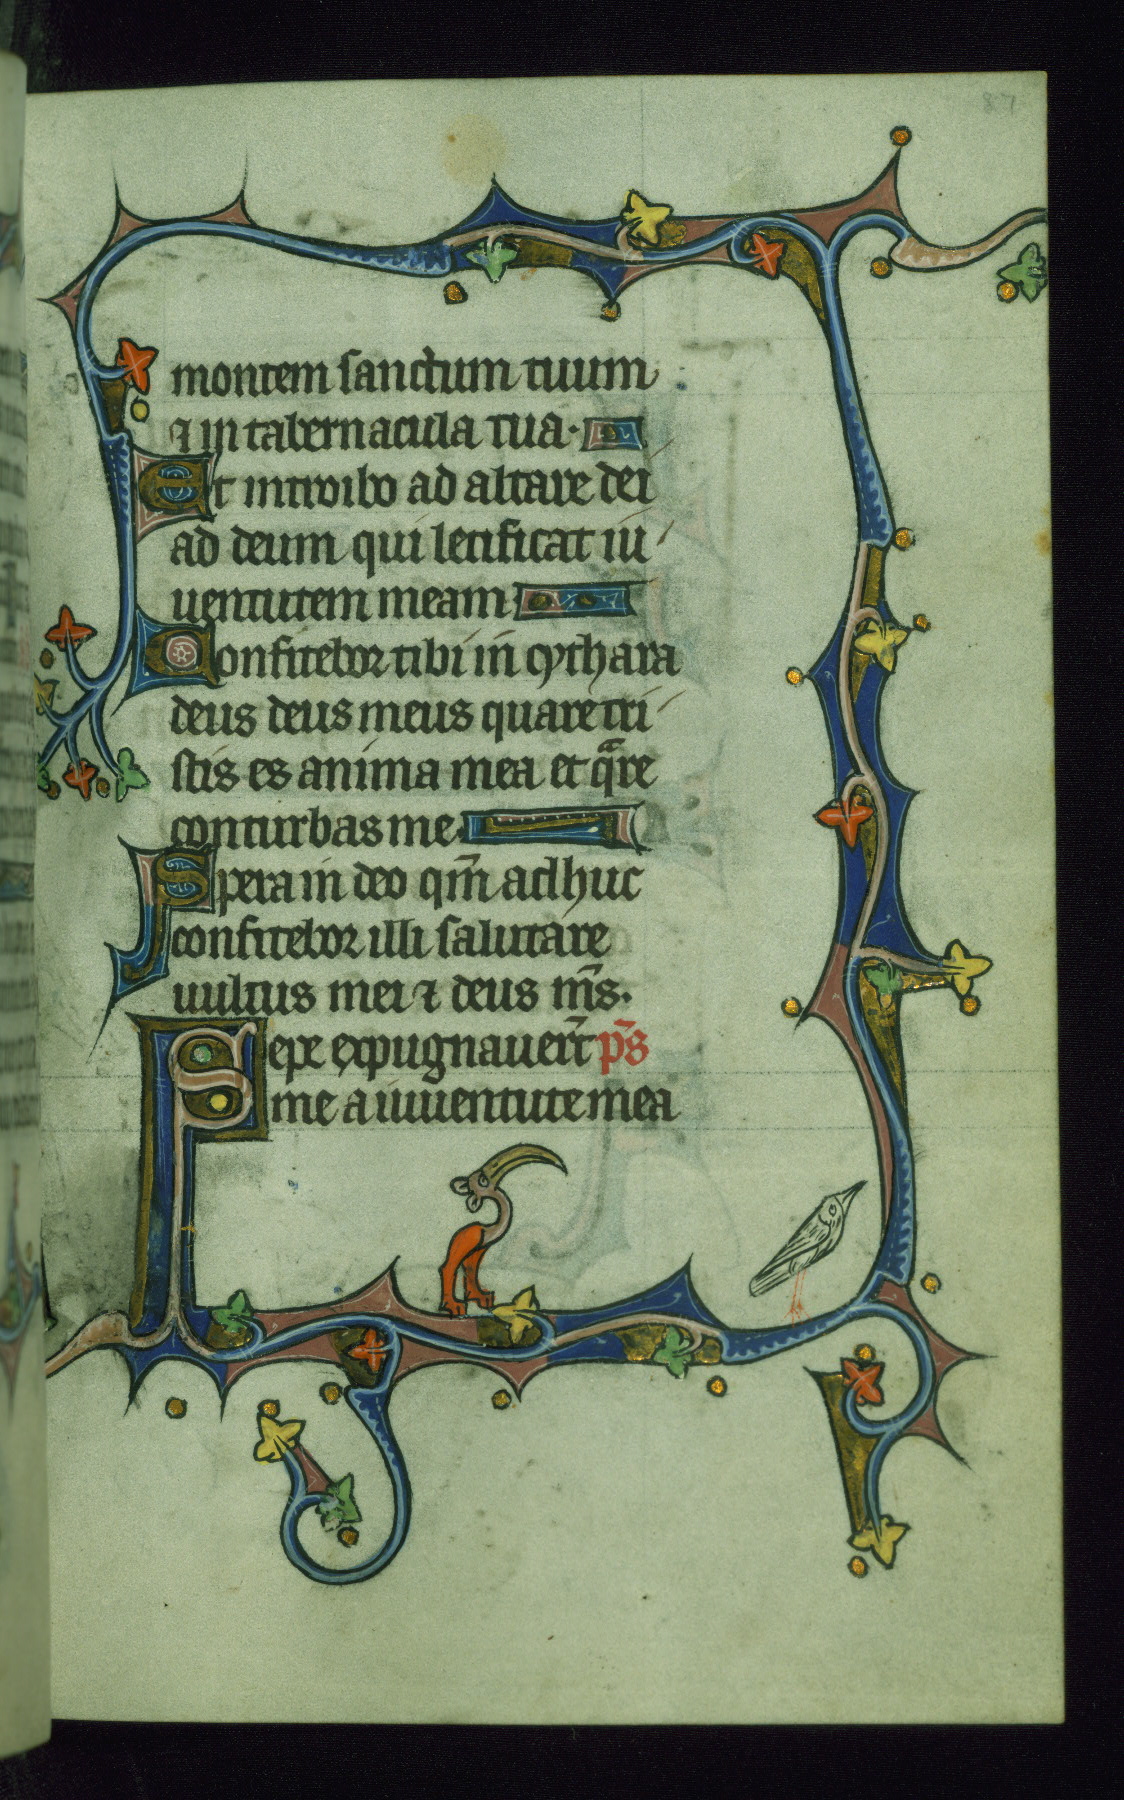 87
montem sanctum tuum
⁊ in tabernacula tua·
Et introibo ad altare dei
ad deum qui letificat iu
uentutem meam
Confitebor tibi in cythara
deus deus meus quare tri
stis es anima mea et qᷓre
conturbas me·
Spera in deo qm̄ adhuc
confitebor illi salutare
uultus mei ⁊ deus m̄s.
Sepe expugnauer̄t p̄s
me a iuuentute mea